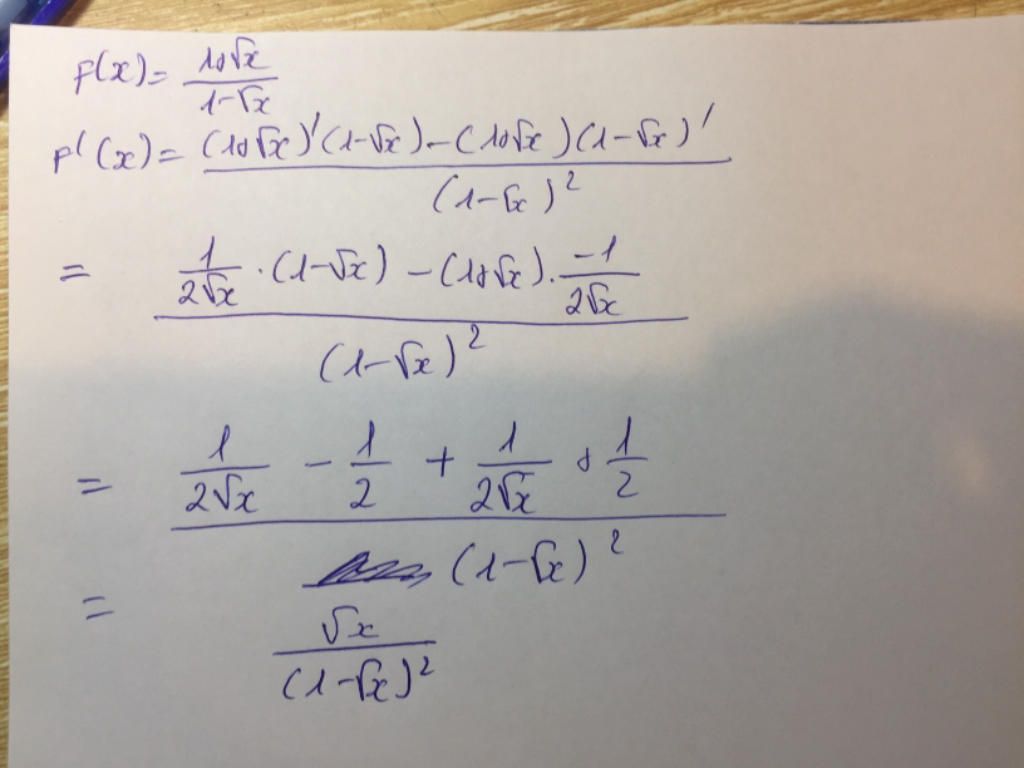 F(x) = (1+√x)/(1-√x)
F'(x) = ((1+√x)'(1-√x) - (1+√x)(1-√x)')/(1-√x)²
= (1/(2√x) · (1-√x) - (1+√x) · (-1)/(2√x))/(1-√x)²
= (1/(2√x) - 1/2 + 1/(2√x) + 1/2)/(1-√x)²
= √x/(1-√x)²